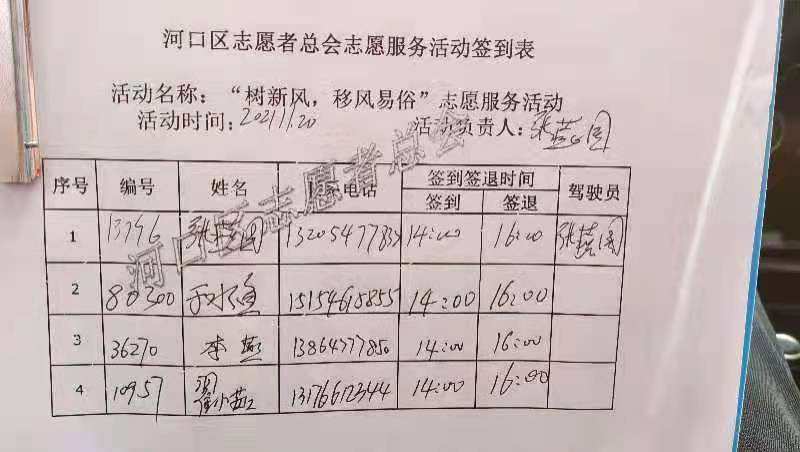 河口区志愿者总会志愿服务活动签到表
活动名称：“树新风，移风易俗”志愿服务活动
活动时间：2021.11.20 活动负责人：张
序号 编号 姓名 电话 签到签退时间 驾驶员
签到 签退
1 13796 张 14:00 16:00 张
2 80300 于水鱼 15154615855 14:00 16:00
3 36270 李燕 13864777850 14:00 16:00
4 10957 14:00 16:00
河口区志愿者总会